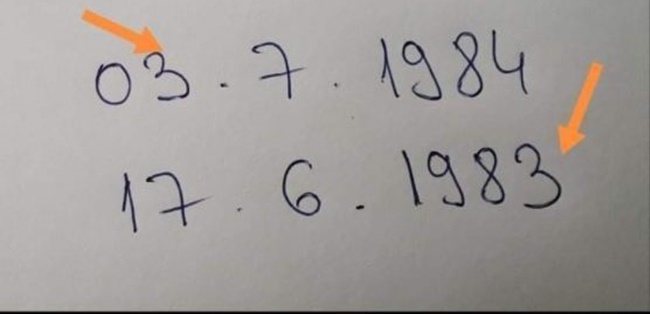 03.7.1984
17.6.1983